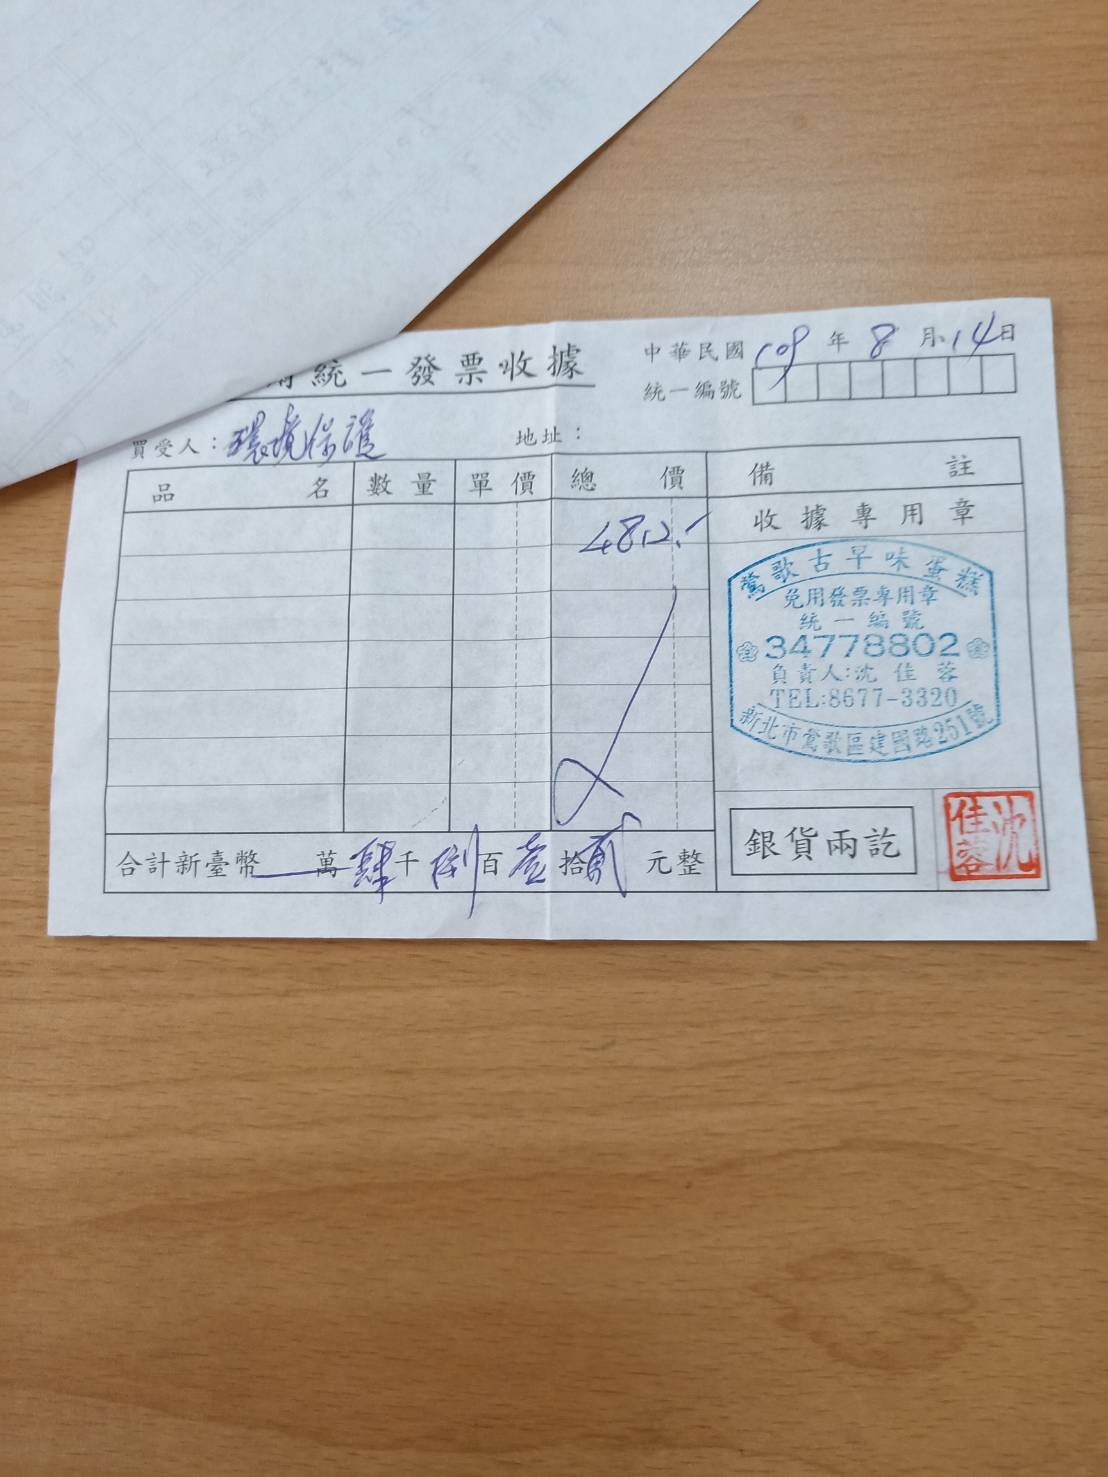 用統一發票收據
中華民國109年8月14日
統一編號
買受人：環境保護
地址：
品名 數量 單價 總價 備註
4812.
收據專用章
鶯歌古早味蛋糕
免用發票專用章
統一編號
34778802
負責人:沈佳蓉
TEL:8677-3320
新北市鶯歌區建國路251號
合計新臺幣 萬肆千捌百壹拾貳元整
銀貨兩訖
沈佳蓉